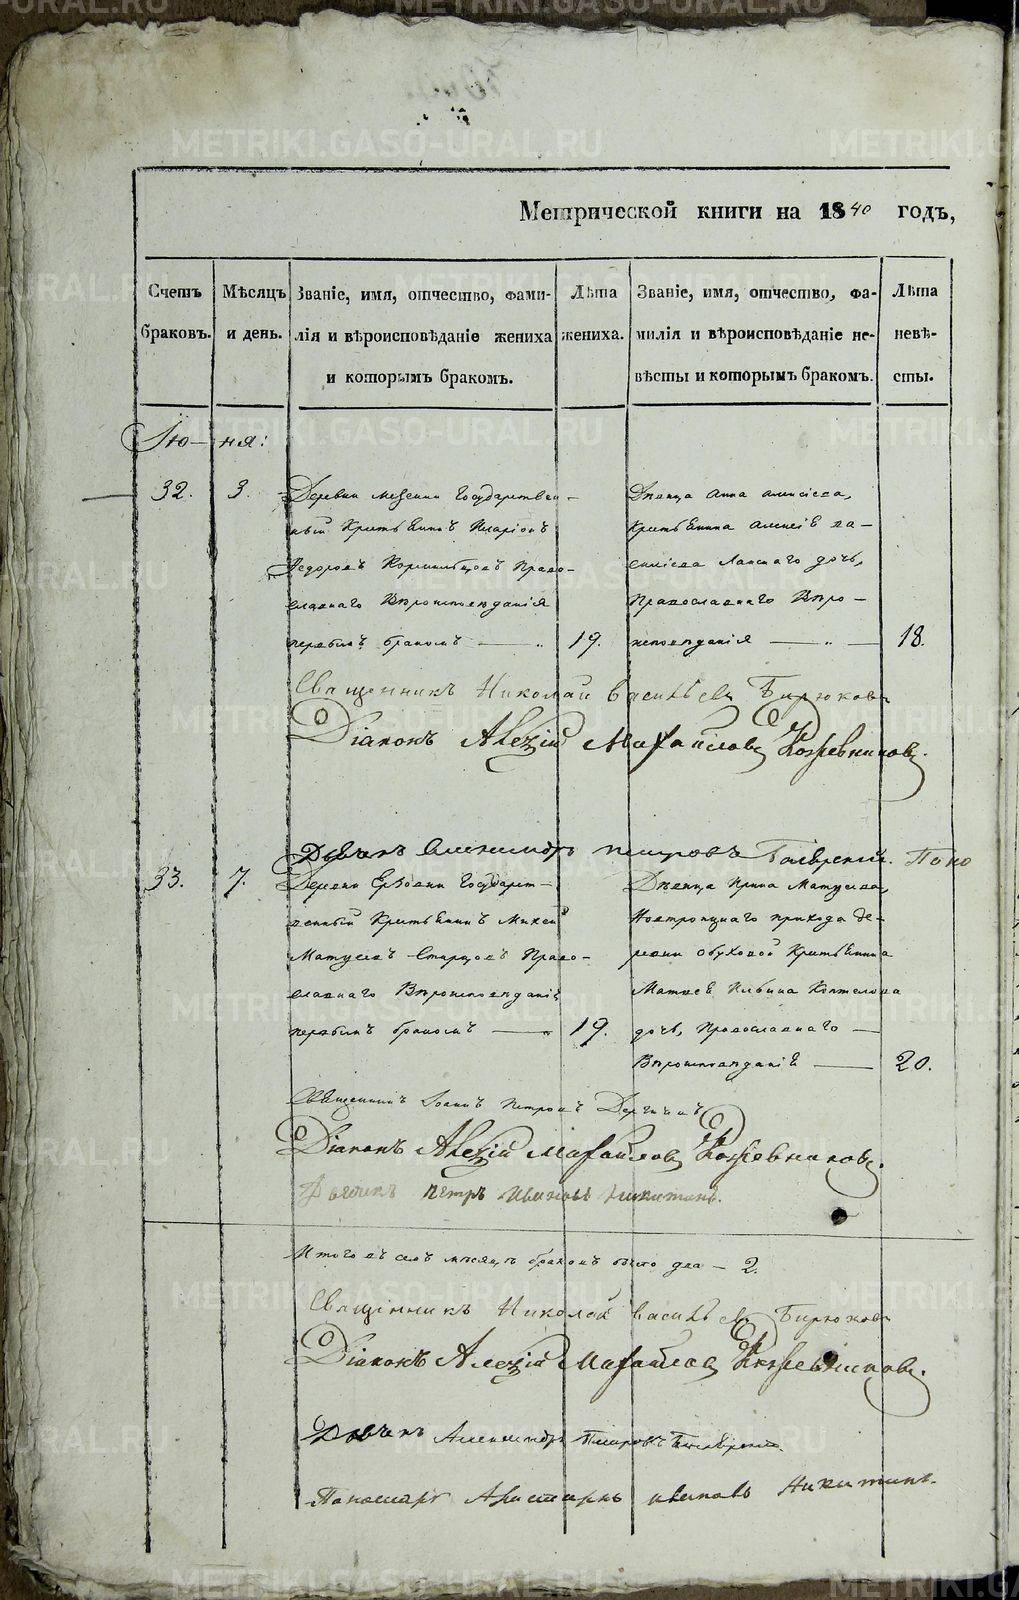 Метрической книги на 1840 годъ,
Счетъ браковъ.
Мѣсяцъ и день.
Званіе, имя, отчество, фамилія и вѣроисповѣданіе жениха и которымъ бракомъ.
Лѣта жениха.
Званіе, имя, отчество, фамилія и вѣроисповѣданіе невѣсты и которымъ бракомъ.
Лѣта невѣсты.
Іюня:
32.
3.
Деревни Мезении Государствен-
ный Крестьянинъ Иларіонъ
Федоровъ Кормильцовъ Право-
славнаго Вѣроисповѣданія
первымъ бракомъ — 19.
Дѣвица Анна Алексіева,
Крестьянина Алексіѣ Ва-
силіева дочь,
Православнаго Вѣро-
исповѣданія — 18.
Священникъ Николай Васильевъ Бирюковъ
Діаконъ Алезій Михайловъ Кожевниковъ.
Дьячекъ Александръ Петровъ
33.
7.
Деревни Государст-
венный Крестьянинъ
Старцовъ Право-
славнаго Вѣроисповѣданія
первымъ бракомъ — 19.
Дѣвица Ирина Матвеева,
прихода де-
ревни Обуховой Крестьянина
Матвеѣ Ильина
дочь, Православнаго
Вѣроисповѣданіѣ — 20.
Священникъ Іоаннъ Петровъ
Діаконъ Алезій Михайловъ Кожевниковъ.
Дьячекъ Петръ Ивановъ Никитинъ.
Итого въ семъ мѣсяцѣ браковъ было два — 2.
Священникъ Николай Васильевъ Бирюковъ
Діаконъ Алезій Михайловъ Кожевниковъ.
Дьячекъ Александръ Петровъ
Пономарь Аристархъ Ивановъ Никитинъ.
METRIKI.GASO-URAL.RU